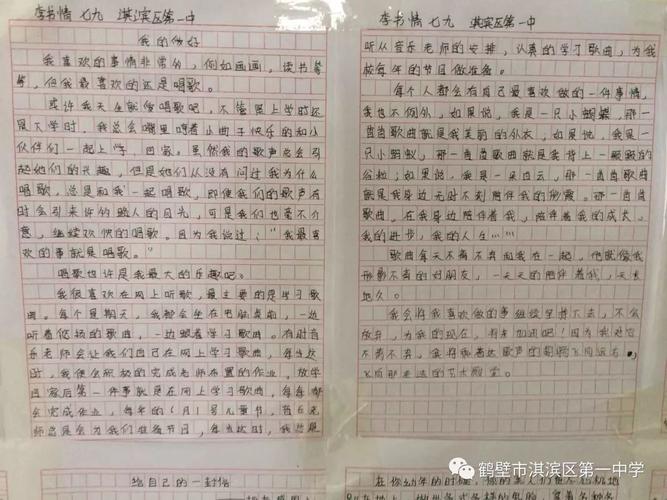 李书情 七九 淇滨区第一中
我的做好
我喜欢的事情非常的多，例如画画，读书等
等，但我最喜欢的还是唱歌。
或许我天生就像唱歌吧，不管是上学时还
是大学时，我总会嘴里哼着小曲子快乐的和小
伙伴们一起上学、回家。虽然我的歌声总会引
起她们的兴趣，但是她们从没有问过我为什么
唱歌，总是和我一起唱歌，即使我们的歌声有
时会引来许的路人的目光，可是我们也毫不介
意，继续欢快的唱歌。因为我说过：“我最喜
欢的事就是唱歌。”
唱歌也许是我最大的乐趣吧。
我很喜欢在网上听歌，最主要的是学习歌
曲。每个星期天，我都会坐在电脑桌前，一边
听着悠扬的歌曲，一边跟着学习歌曲。有时音
乐老师会让我们自己在网上学习歌曲，每当这
时，我便会积极的完成老师布置的作业。放学
回家后第一件事就是在网上学习歌曲，每每都
会完成作业，每年的6月1号儿童节，音乐老
师总是会为我们准备节目，每当这时，我总是
给自己的一封信
李书情 七九 淇滨区第一中
听从音乐老师的安排，认真的学习歌曲，为我
校每年的节目做准备。
每个人都会有自己最喜欢做的一件事情，
我也不例外，如果说，我是一只小蝴蝶，那一
首首歌曲就是我美丽的外衣；如果说，我是一
只小蚂蚁，那一首首歌曲就是我背上一颗颗的
谷粒；如果说，我是一朵白云，那一首首歌曲
就是我身边无时不刻陪伴我的彩霞。那一首首
歌曲，在我身边陪伴着我，陪伴着我的成长、
我的进步，我的人生……
歌曲每天不离不弃和我在一起，他就像我
形影不离的好朋友，一天天的陪伴着我，天长
地久。
我会将我喜欢做的事继续坚持下去，不会
放弃，为我的现在，
不离不弃，
在你幼年的时候，你的家人们
鹤壁市淇滨区第一中学